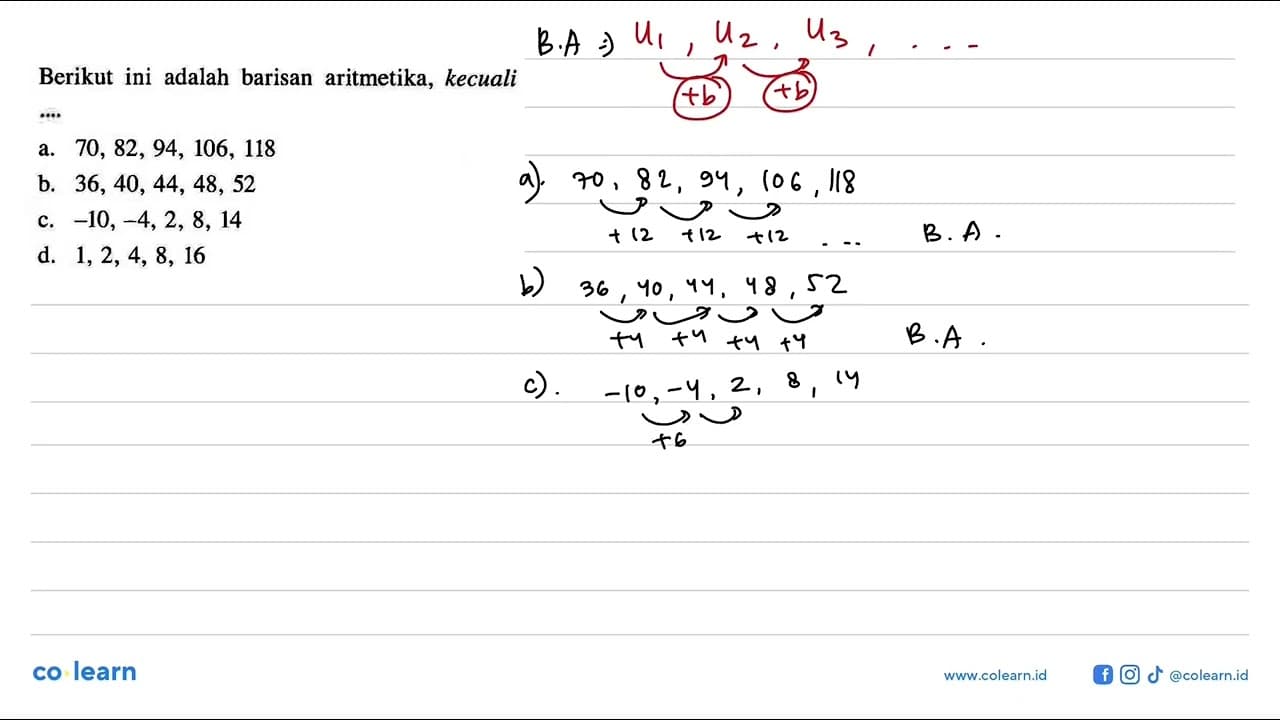 Berikut ini adalah barisan aritmetika, kecuali
....
a. 70, 82, 94, 106, 118
b. 36, 40, 44, 48, 52
c. –10, –4, 2, 8, 14
d. 1, 2, 4, 8, 16
B.A => U1, U2, U3, ....
+b +b
a). 70, 82, 94, 106, 118
+12 +12 +12 ... B.A.
b) 36, 40, 44, 48, 52
+4 +4 +4 +4 B.A.
c). -10, -4, 2, 8, 14
+6
co learn
www.colearn.id @colearn.id